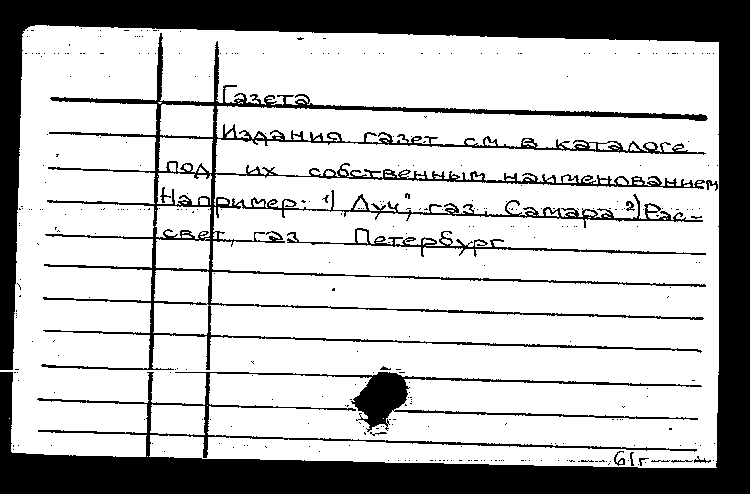 Газета
Издания газет см. в каталоге
под их собственным наименованием
Например: 1) „Луч", газ. Самара 2) Рас-
свет, газ. Петербург